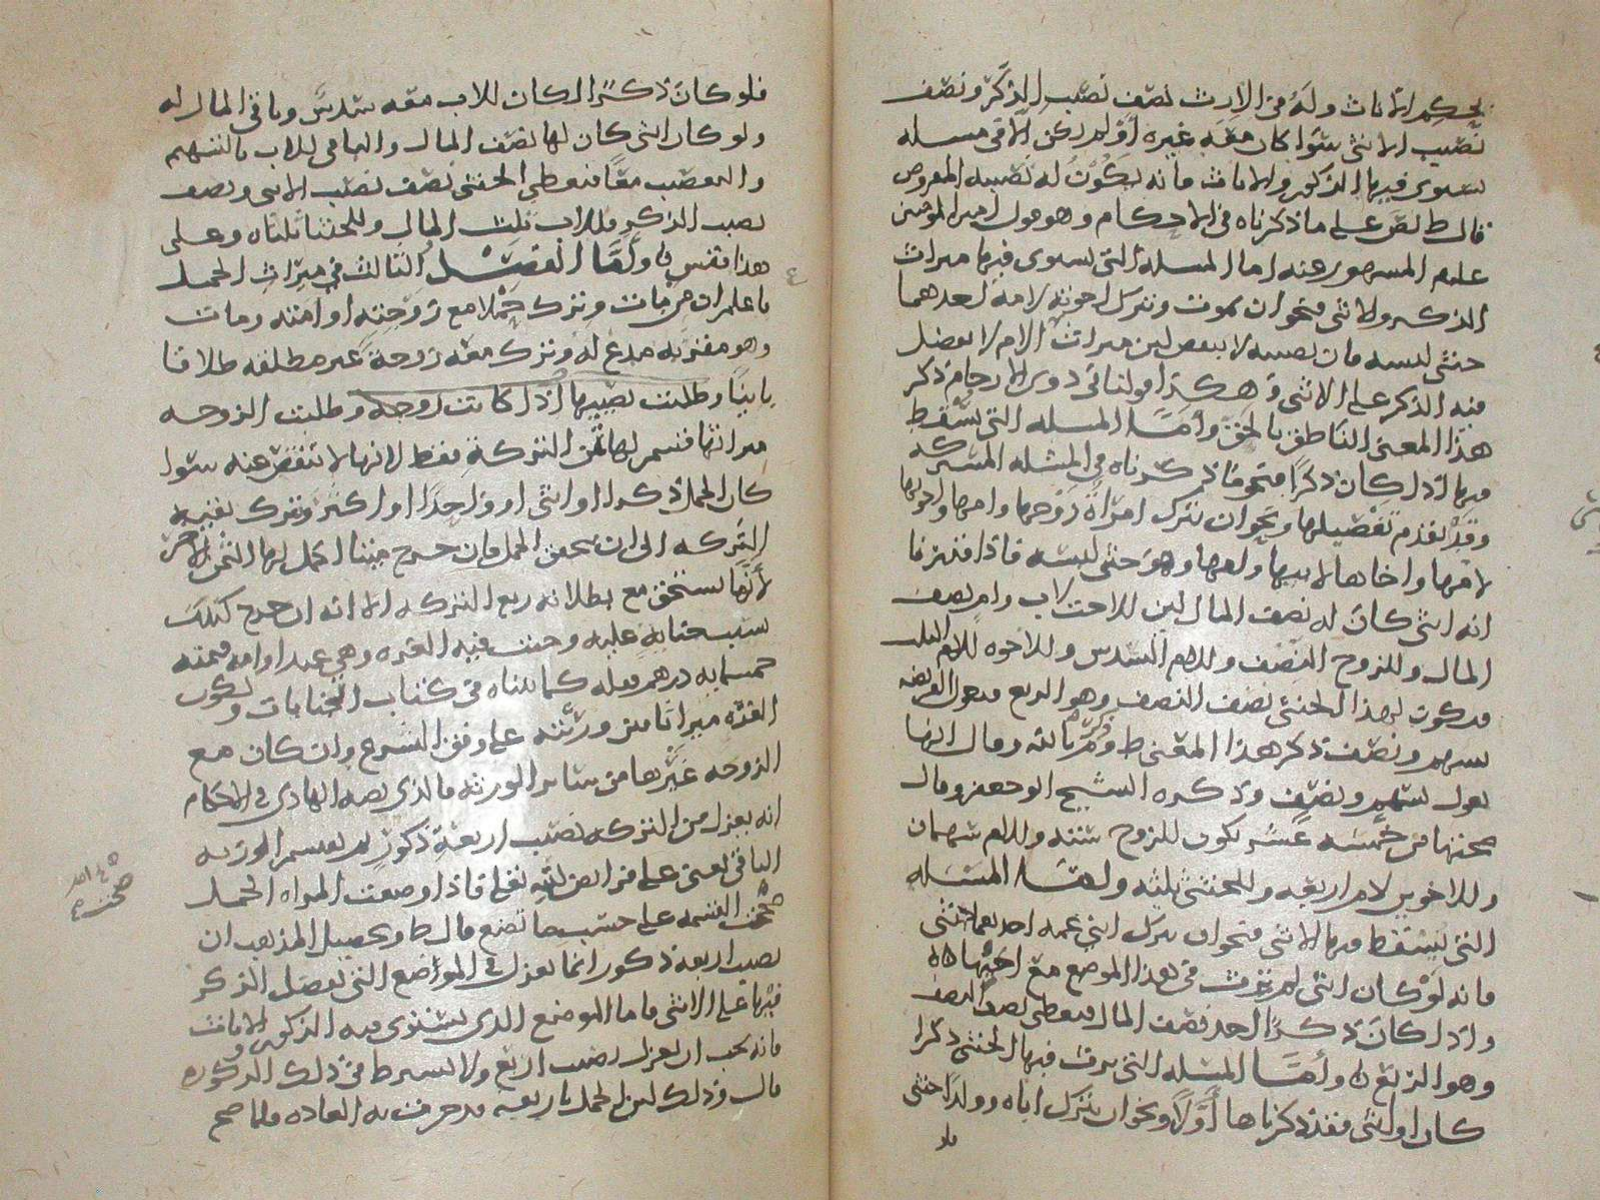 بحكم الاناث وله في الارث نصف نصيب الذكر ونصف
نصيب الانثى سوا كان معه غيره او لم يكن الا في مسله
يستوي فيها الذكور والاناث فانه يكون له نصيبه المفروض
قال ط نص على ما ذكرناه في الاحكام وهو قول امير المومنين
عليه المشهور عنه اما المسله التي يستوي فيها ميراث
الذكر والانثى فنحو ان يموت ويترك اخوته لامه احدهما
خنثى لبسه فان نصيبه لا ينقص لان ميراث الام لا يفضل
فيه الذكر على الانثى وهكذا قولنا في ذوي الارحام ذكر
هذا المعنى الناطق بالحق واما المسله التي يسقط
فيها اذا كان ذكرا فنحو ما ذكرناه في المسله المشركه
وقد تقدم تفصيلها ونحو ان تترك امراة زوجها وامها واخوتها
لامها واخاها لابيها وامها وهو خنثى لبسه فاذا قدرنا
انه انثى كان له نصف المال لان للاخت لاب وام نصف
المال وللزوج النصف وللام السدس وللاخوه للام الثلث
فيكون لهذا الخنثى نصف النصف وهو الربع فتعول الفريضه
بسهم ونصف ذكر هذا المعنى ط و وقال انها
تعول بسهم ونصف وذكره الشيخ ابو جعفر وقال
صحتها من خمسه عشر يكون للزوج سته وللام سهمان
وللاخوين لام اربعه وللخنثى ثلثه واما المسله
التي يسقط فيها الانثى فنحو ان يترك ابني عمه احدهما خنثى
فانه لو كان انثى لم يرث في هذا الموضع مع اخيها
واذا كان ذكرا اخذ نصف المال فيعطى نصف النصف
وهو الربع واما المسله التي يرث فيها الخنثى ذكرا
كان او انثى فقد ذكرناها اولا ونحو ان يترك اباه وولدا خنثى
فلو
فلو كان ذكرا لكان للاب معه سدس وباقي المال له
ولو كان انثى كان لها نصف المال والباقي للاب بالسهم
والتعصيب معا فنعطي الخنثى نصف نصيب الانثى ونصف
نصيب الذكر فللاب ثلث المال وللخنثا ثلثاه وعلى
هذا فقس واما الفصل الثالث في ميراث الحمل
فاعلم ان من مات وترك حملا مع زوجته او امته ومات
وهو مقر به مدع له وترك معه زوجة غير مطلقه طلاقا
باينا وطلبت نصيبها اذا كانت زوجه وطلبت الزوجه
ميراثها قسم لها ثمن التركة فقط لانها لا تنقص عنه سوا
كان الحمل ذكرا او انثى او واحدا او اكثر وتترك بقيه
التركه الى ان يتحقق الحمل فان خرج ميتا اكمل لها الثمن الاخر
لانها تستحق مع بطلانه ربع التركه الا انه ان خرج كذلك
بسبب جنايه عليه وجبت فيه الغره وهي عبد او امه قيمته
خمسمايه درهم فضه كما بيناه في كتاب الجنايات وتكون
الغره ميراثا من ورثته على وفق الشرع وان كان مع
الزوجه غيرها من سائر الورثه فالذي نصه الهادي في الاحكام
انه يعزل من التركه نصيب اربعة ذكور ثم يقسم الورثه
الباقي يعني على فرايض الله تعالى فاذا وضعت المراه الحمل
صحت القسمه على حسب ما تضع قال ط وتحصيل المذهب ان
نصيب اربعه ذكور انما يعزل في المواضع التي يفضل الذكر
فيها على الانثى فاما الموضع الذي يستوي فيه الذكور والاناث
فانه يجب ان يعزل نصيب اربع ولا يشترط في ذلك الذكوره
قال وذلك لان الحمل باربعه قد جرت به العاده فلما صح